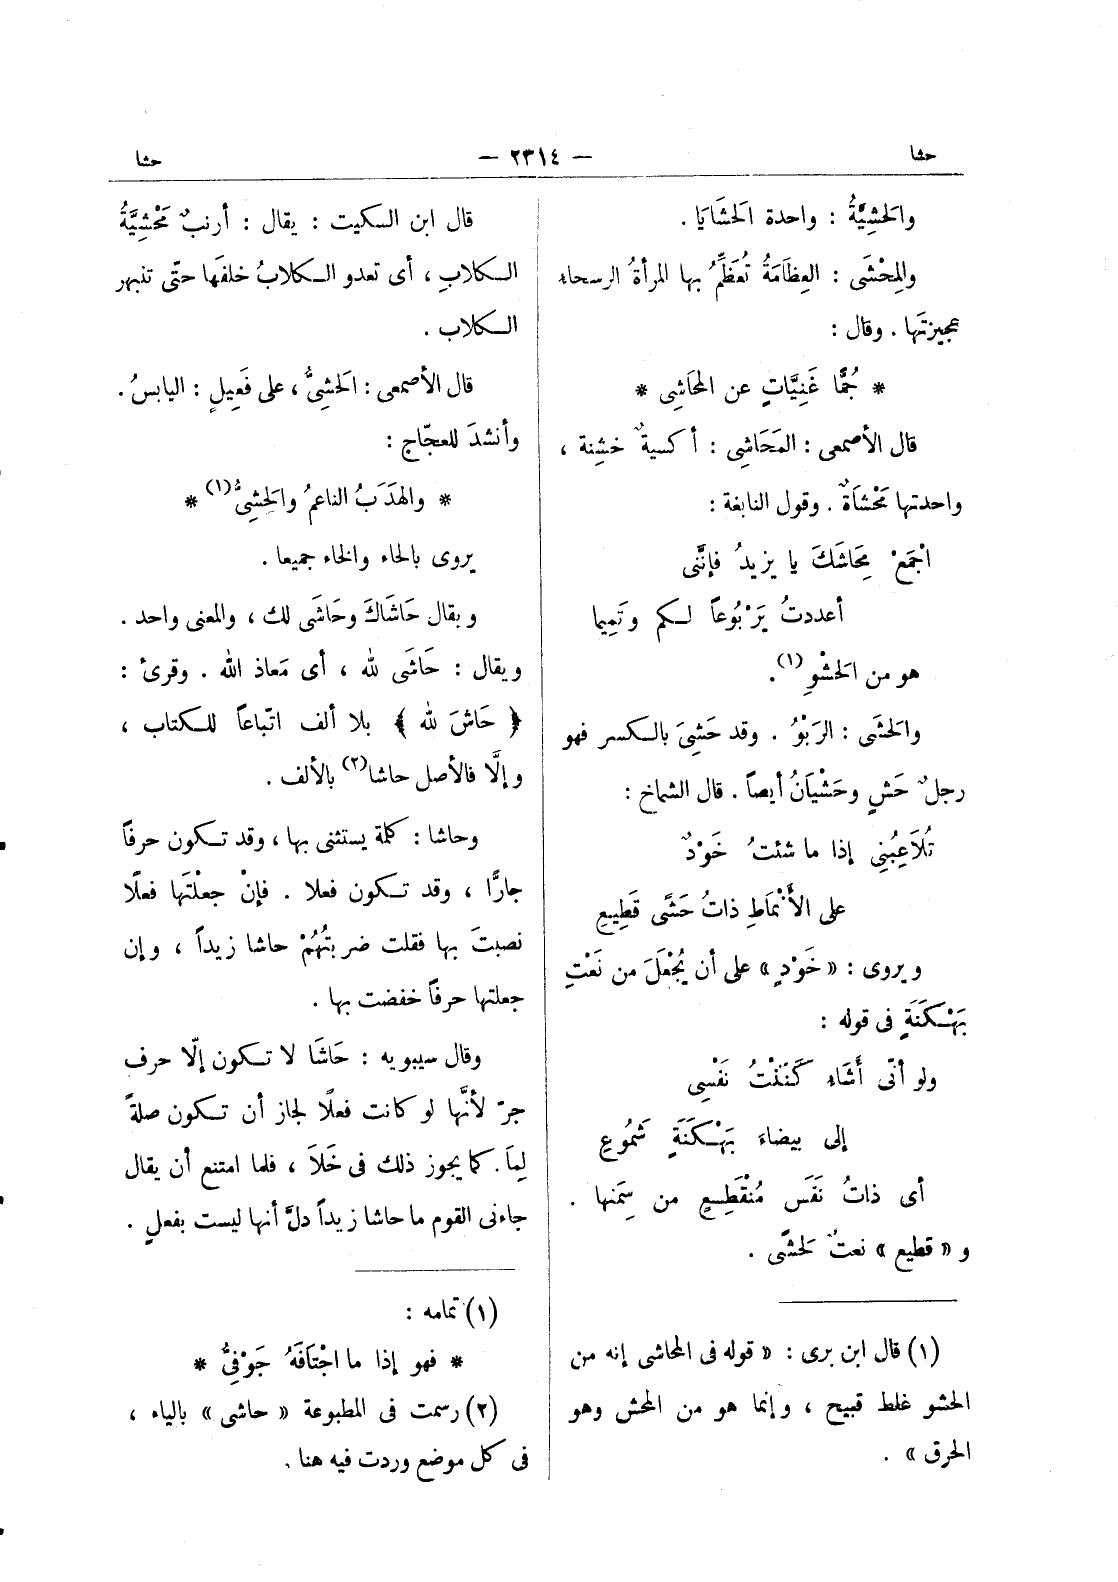 حشا — ٢٣١٤ — حشا
والحَشِيَّةُ : واحدة الحَشَايَا .
والمِحْشَى : العِظَامَةُ تُعَظِّمُ بها المرأةُ الرسحاء
عجيزتَها . وقال :
* جُمًّا غَنِيَّاتٍ عن المحَاشِى *
قال الأصمعى : المَحَاشِى : أكسيةٌ خشِنة ،
واحدتها مَحْشَاةٌ . وقول النابغة :
اجْمَعْ مِحَاشَكَ يا يزيدُ فإنَّنى
أعددتُ يَرْبُوعاً لكم وتَمِيما
هو من الحَشْوِ (١) .
والحَشَى : الرَبْوُ . وقد حَشِىَ بالكسر فهو
رجلٌ حَشٍ وحَشْيَانُ أيضاً . قال الشماخ :
تُلَاعِبُنِى إذا ما شئتُ خَوْدٌ
على الأَنْمَاطِ ذاتُ حَشًى قَطِيعِ
ويروى : « خَوْدٍ » على أن يُجْعَلَ من نَعْتِ
بَهْكَنَةٍ فى قوله :
ولو أنّى أَشَاءُ كَنَنْتُ نَفْسِى
إلى بيضاءَ بَهْكَنَةٍ شَمُوعِ
أى ذاتُ نَفَس مُنْقَطِعٍ من سِمَنها .
و « قطيع » نعتٌ لحَشًى .
(١) قال ابن برى : « قوله فى المحاشى إنه من
الحشو غلط قبيح ، وإنما هو من المحش وهو
الحرق » .
قال ابن السكيت : يقال : أرنبٌ مَحْشِيَّةُ
الكلابِ ، أى تعدو الكلابُ خلفَها حتّى تنبهر
الكلاب .
قال الأصمعى : الحَشِىُّ ، على فَعِيلٍ : اليابسُ .
وأنشدَ للعجّاج :
* والهَدَبُ الناعمُ والحَشِىُّ (١) *
يروى بالحاء والخاء جميعا .
ويقال حَاشَاكَ وحَاشَى لك ، والمعنى واحد .
ويقال : حَاشَى لله ، أى مَعاذ الله . وقرئ :
﴿ حَاشَ لله ﴾ بلا ألف اتّباعاً للكتاب ،
وإلَّا فالأصل حاشا (٢) بالألف .
وحاشا : كلمة يستثنى بها ، وقد تكون حرفاً
جارًّا ، وقد تكون فعلا . فإنْ جعلْتَها فعلًا
نصبتَ بها فقلت ضربتُهُمْ حاشا زيداً ، وإن
جعلتها حرفاً خفضت بها .
وقال سيبويه : حَاشَا لا تكون إلّا حرف
جرّ لأنَّها لو كانت فعلًا لجاز أن تكون صلةً
لِمَا . كما يجوز ذلك فى خَلَا ، فلما امتنع أن يقال
جاءنى القوم ما حاشا زيداً دلَّ أنها ليست بفعلٍ .
(١) تمامه :
* فهو إذا ما اجْتَافَهُ جَوْفِىُّ *
(٢) رسمت فى المطبوعة « حاشى » بالياء ،
فى كل موضع وردت فيه هنا .